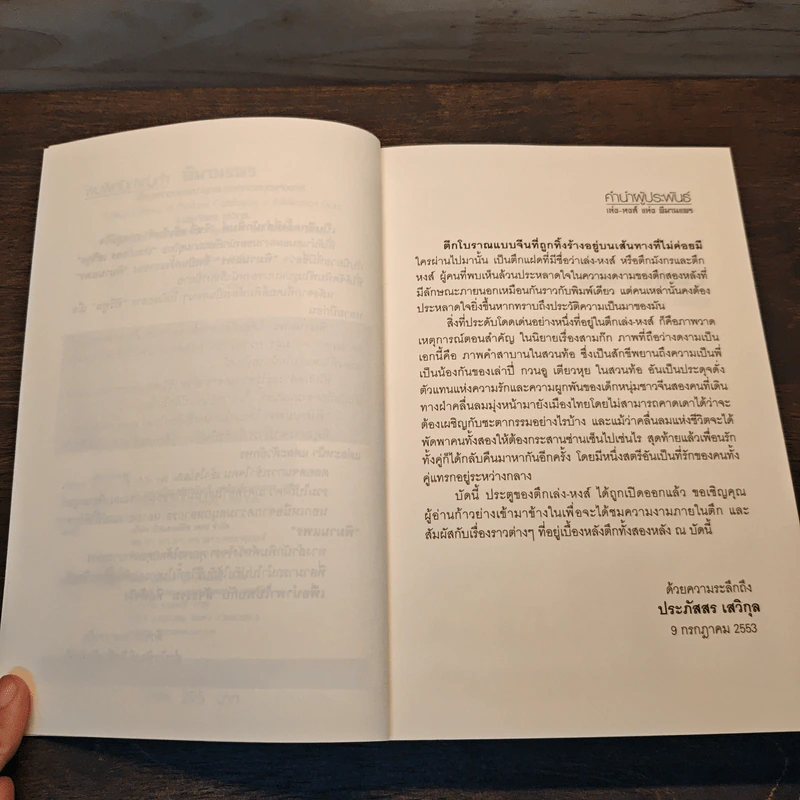 คำนำผู้ประพันธ์
เล่ง-หงส์ แห่ง พิมานแพร
ตึกโบราณแบบจีนที่ถูกทิ้งร้างอยู่บนเส้นทางที่ไม่ค่อยมี
ใครผ่านไปมานั้น เป็นตึกแฝดที่มีชื่อว่าเล่ง-หงส์ หรือตึกมังกรและตึก
หงส์ ผู้คนที่พบเห็นล้วนประหลาดใจในความงดงามของตึกสองหลังที่
มีลักษณะภายนอกเหมือนกันราวกับพิมพ์เดียว แต่คนเหล่านั้นคงต้อง
ประหลาดใจยิ่งขึ้นหากทราบถึงประวัติความเป็นมาของมัน
สิ่งที่ประดับโดดเด่นอย่างหนึ่งที่อยู่ในตึกเล่ง-หงส์ ก็คือภาพวาด
เหตุการณ์ตอนสำคัญ ในนิยายเรื่องสามก๊ก ภาพที่ถือว่างดงามเป็น
เอกนี้คือ ภาพคำสาบานในสวนท้อ ซึ่งเป็นสักขีพยานถึงความเป็นพี่
เป็นน้องกันของเล่าปี่ กวนอู เตียวหุย ในสวนท้อ อันเป็นประดุจดั่ง
ตัวแทนแห่งความรักและความผูกพันของเด็กหนุ่มชาวจีนสองคนที่เดิน
ทางฝ่าคลื่นลมมุ่งหน้ามายังเมืองไทยโดยไม่สามารถคาดเดาได้ว่าจะ
ต้องเผชิญกับชะตากรรมอย่างไรบ้าง และแม้ว่าคลื่นลมแห่งชีวิตจะได้
พัดพาคนทั้งสองให้ต้องกระสานซ่านเซ็นไปเช่นไร สุดท้ายแล้วเพื่อนรัก
ทั้งคู่ก็ได้กลับคืนมาหากันอีกครั้ง โดยมีหนึ่งสตรีอันเป็นที่รักของคนทั้ง
คู่แทรกอยู่ระหว่างกลาง
บัดนี้ ประตูของตึกเล่ง-หงส์ ได้ถูกเปิดออกแล้ว ขอเชิญคุณ
ผู้อ่านก้าวย่างเข้ามาข้างในเพื่อจะได้ชมความงามภายในตึก และ
สัมผัสกับเรื่องราวต่างๆ ที่อยู่เบื้องหลังตึกทั้งสองหลัง ณ บัดนี้
ด้วยความระลึกถึง
ประภัสสร เสวิกุล
9 กรกฎาคม 2553